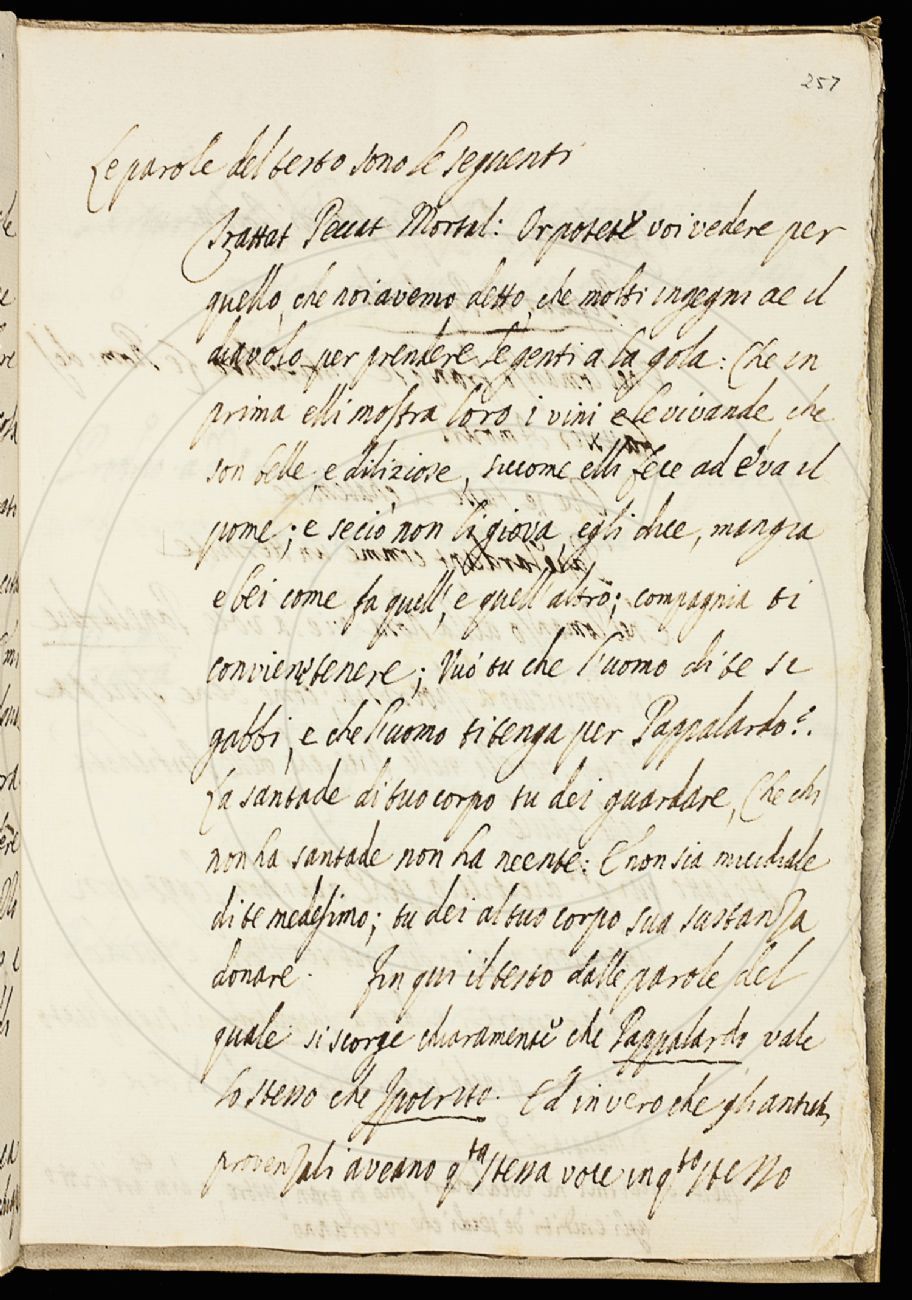 257
Le parole del testo sono le seguenti
Trattat Peccat Mortal: Or potete voi vedere per
quello, che noi avemo detto, che molti ingegni ae il
diavolo per prendere le genti a la gola: Che in
prima elli mostra loro i vini e le vivande, che
son belle, e diliziose, siccome elli fece ad Eva il
pome; e se ciò non li giova egli dice, mangia
e bei come fa quell', e quell'altro; compagnia ti
convien tenere; Vuo' tu che l'uomo di te si
gabbi, e che l'uomo ti tenga per Pappalardo?.
La santade di tuo corpo tu dei guardare, Che chi
non ha santade non ha neente: E non sia micidiale
di te medesimo; tu dei al tuo corpo sua sustanza
donare. Fin qui il testo dalle parole del
quale si scorge chiaramente che Pappalardo vale
lo stesso che Ipocrito. Ed in vero che gli antichi
provenzali aveano q.ta stessa voce in q.to stesso